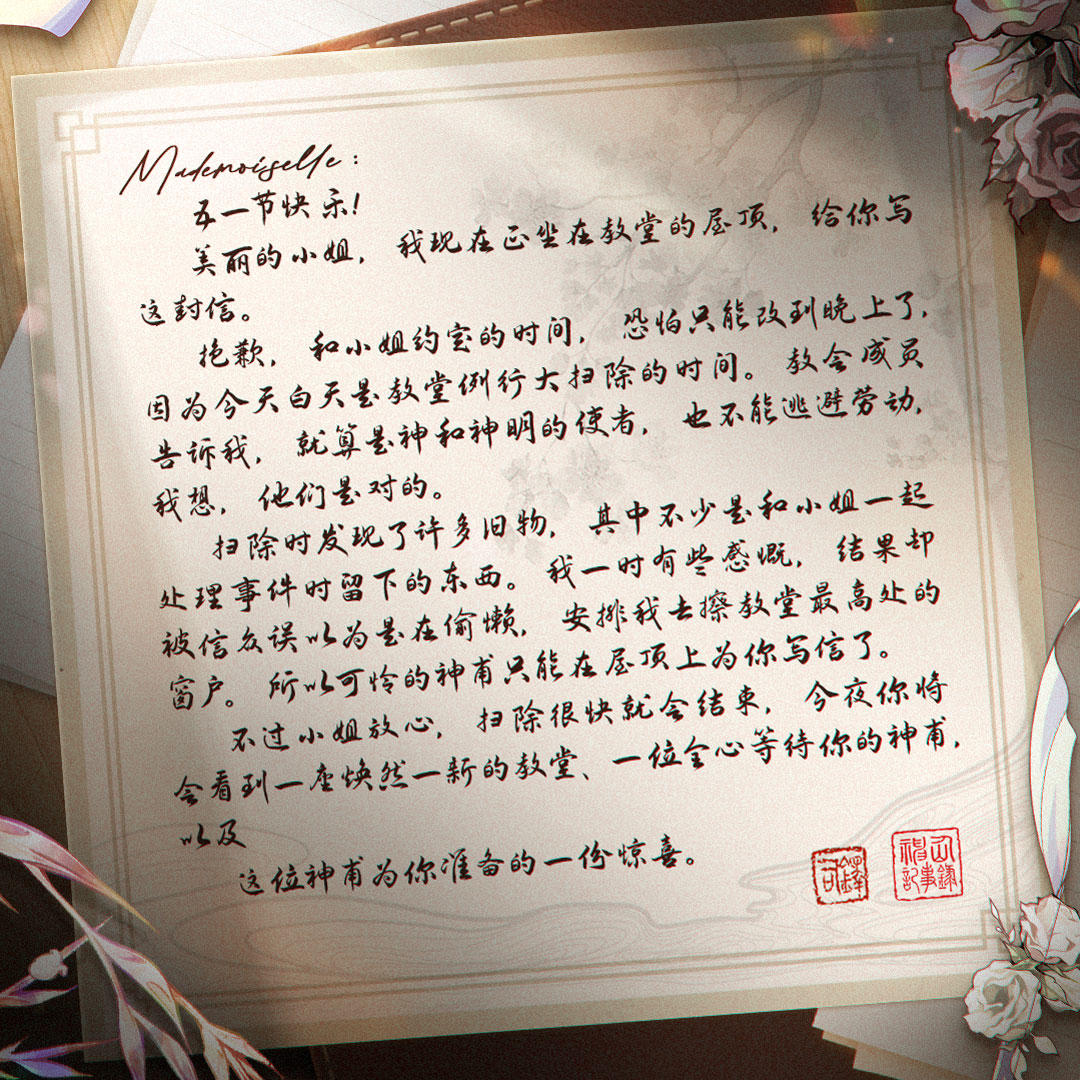 Mademoiselle:
五一节快乐!
美丽的小姐，我现在正坐在教堂的屋顶，给你写
这封信。
抱歉，和小姐约定的时间，恐怕只能改到晚上了，
因为今天白天是教堂例行大扫除的时间。教会成员
告诉我，就算是神和神明的使者，也不能逃避劳动，
我想，他们是对的。
扫除时发现了许多旧物，其中不少是和小姐一起
处理事件时留下的东西。我一时有些感慨，结果却
被信众误以为是在偷懒，安排我去擦教堂最高处的
窗户。所以可怜的神甫只能在屋顶上为你写信了。
不过小姐放心，扫除很快就会结束，今夜你将
会看到一座焕然一新的教堂、一位全心等待你的神甫，
以及
这位神甫为你准备的一份惊喜。